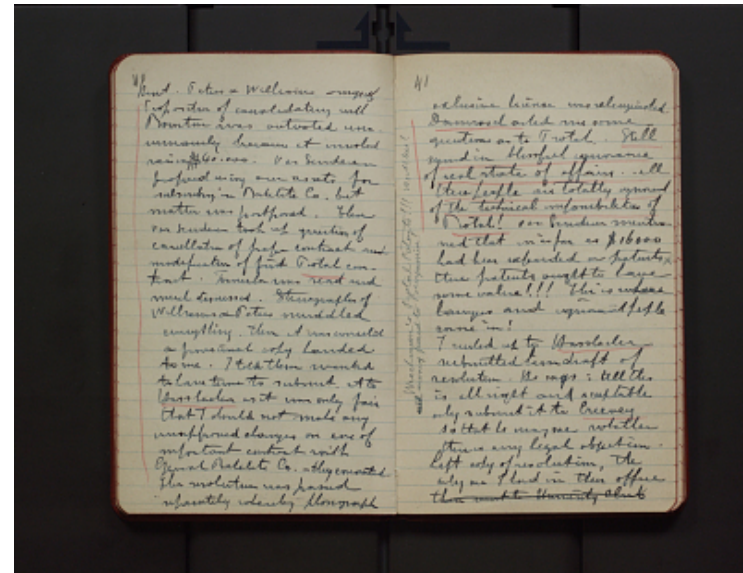 40
and. Peters & Williams
Proposition of consolidating with
Boonton was outvoted una
nimously because it involved
raising $60.000. Van Sinderen
proposed using our assets for
subscribing in Bakelite Co. but
matter was postponed. Then
Van Sinderen took up question of
cancellation of contract and
modification of first Protal con-
tract. was read and
much discussed. Stenographer of
Williams & Peters muddled
everything. Then
a provisional copy handed
to me. I told them wanted
to have time to submit it to
Hasslacher as it was only fair
that I should not make any
unapproved changes on one of
important contract with
General Bakelite Co. They consented
The resolution was passed
separately whereby Phonograph
41
exclusive license was relinquished
Damrosch asked me some
questions as to Protal. Still
in blissful ignorance
of real state of affairs. All
these people are totally ignorant
of the technical impossibilities of
Protal! Van Sinderen mentio-
ned that in as far as $16000
had been expended on patents,
these patents ought to have
some value!!! This is where
lawyers and ignorant people
come in!
I called up to Hasslacher
submitted him draft of
resolution. He says: tell this
is all right and acceptable
only submit it to Creevey
so that he may see whether
there is any legal objection.
Left copy of resolution, the
only one I had in their office
then went to University Club
of Protal Patents!!!